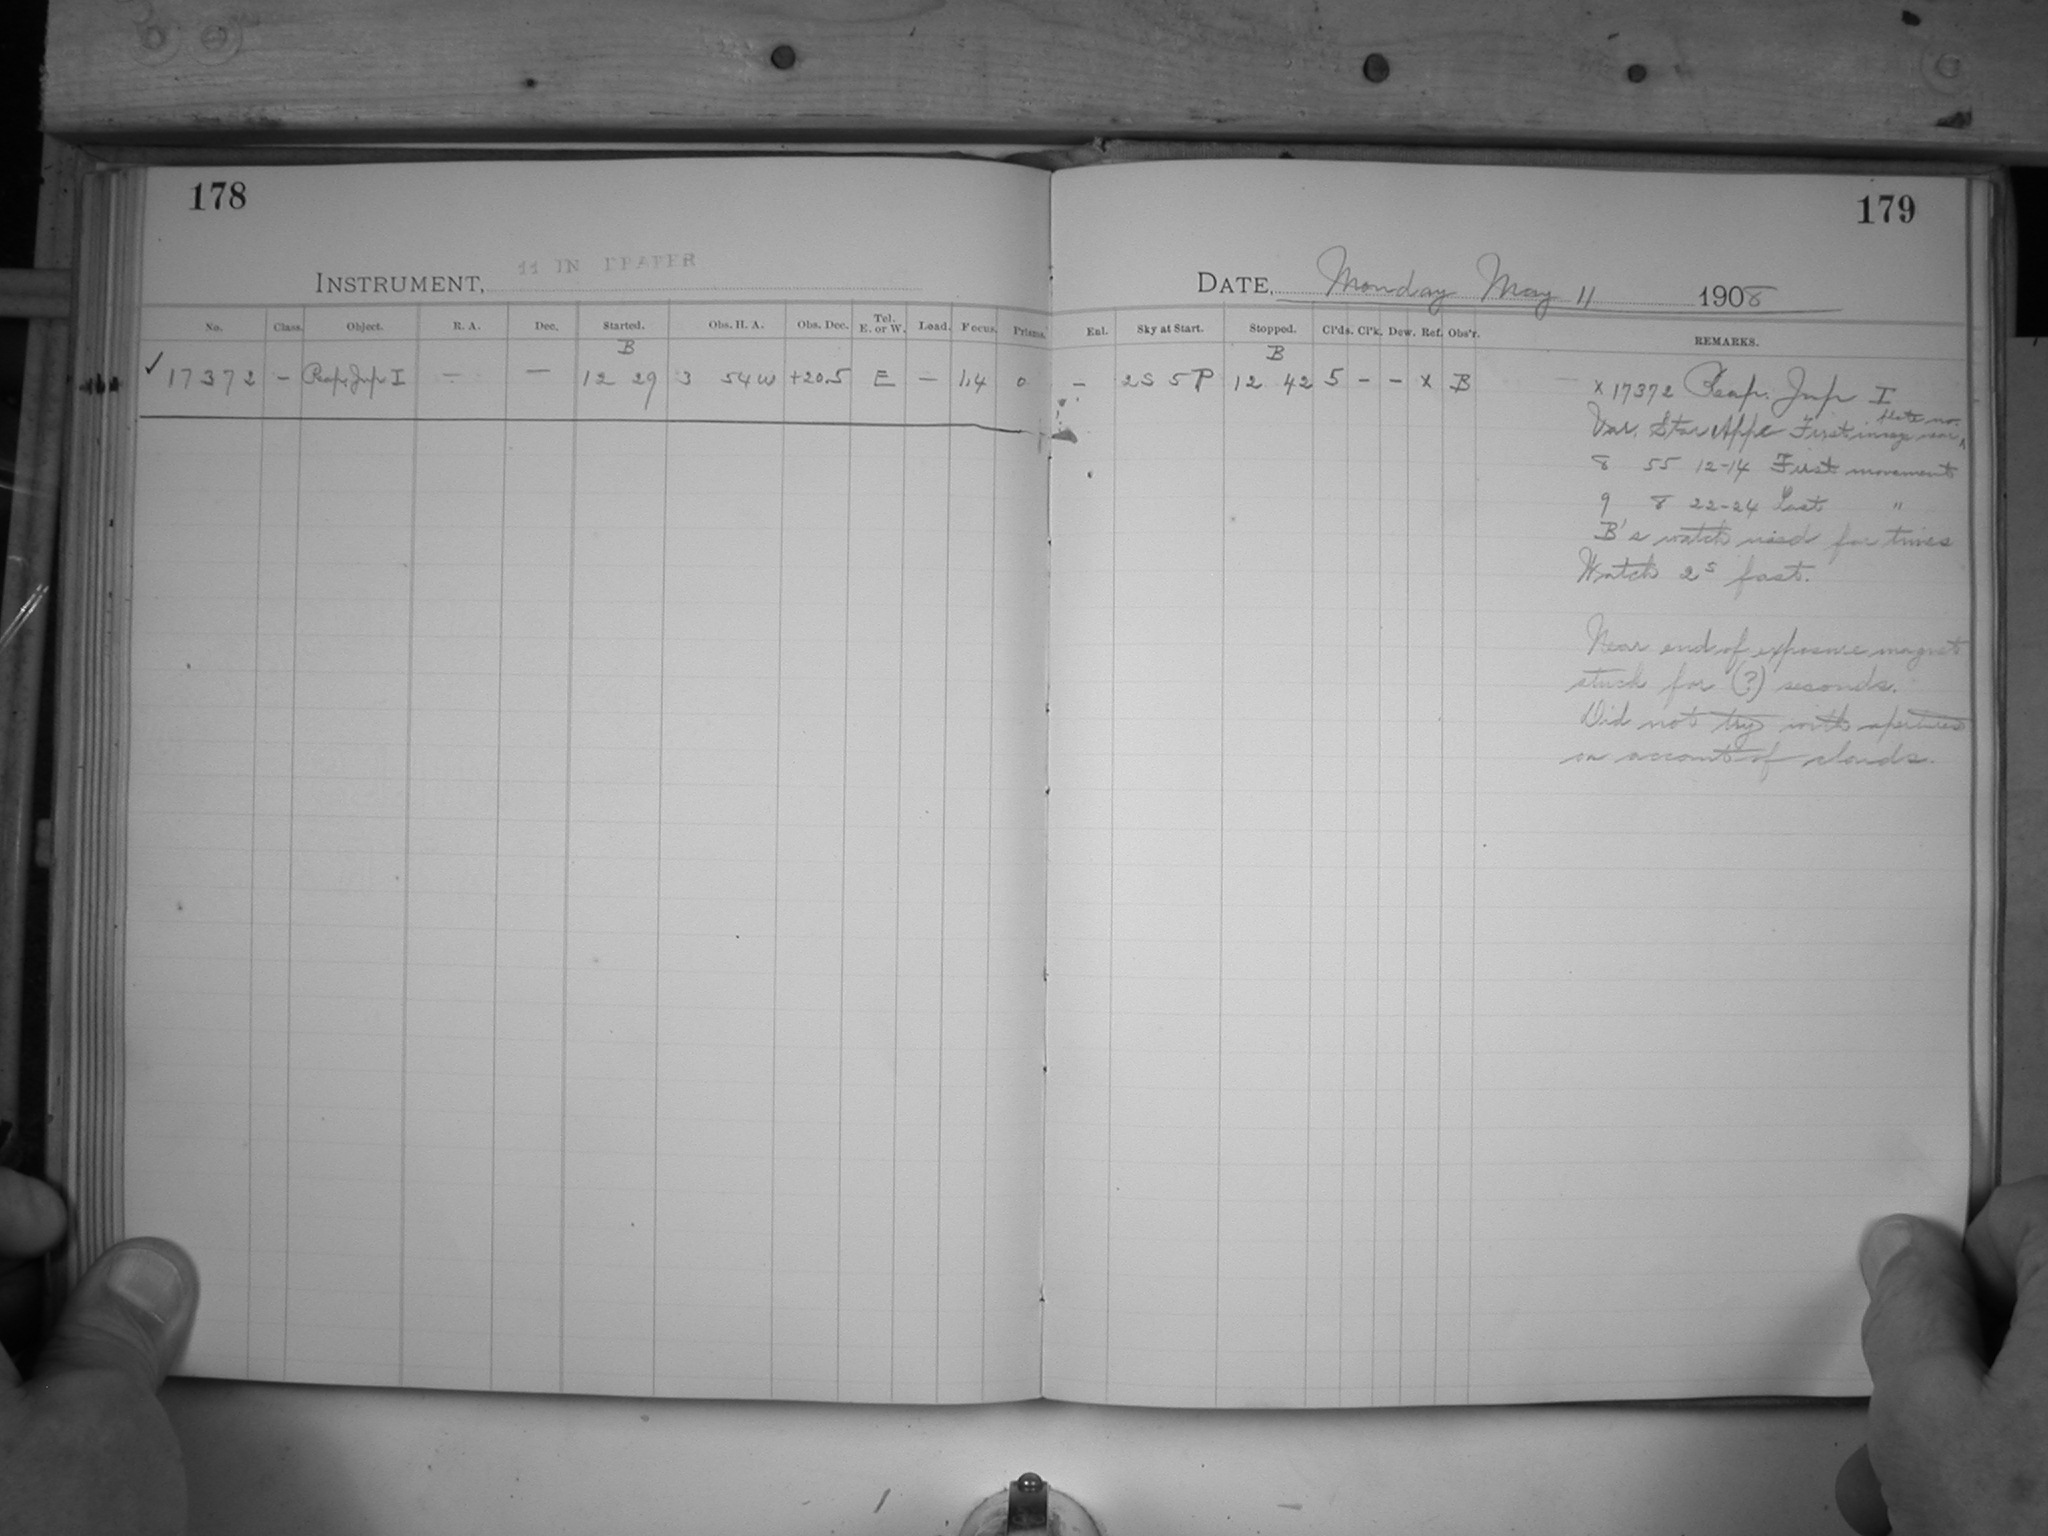 178
INSTRUMENT, 11 IN DRAPER
No. Class. Object. R. A. Dec. Started. Obs. H. A. Obs. Dec. Tel. E. or W. Load. Focus. Prisms.
B
✓ 17372 – Reap. Jup I — — 12 29 3 54 W +20.5 E — 1.4 0
179
DATE, Monday May 11 1908
Enl. Sky at Start. Stopped. Cl'ds. Cl'k. Dew. Ref. Obs'r. REMARKS.
B
– 2S 5P 12 42 5 – – x B
x 17372 Reap. Jup I
plate no.
Var. Star App. First image
8 55 12-14 First movement
9 8 22-24 Last "
B's watch used for times
Watch 2s fast.
Near end of exposure magnet
stuck for (?) seconds.
Did not try with apertures
on account of clouds.